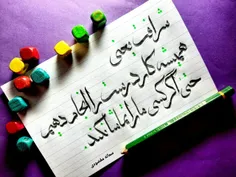 شرافت یعنی
همیشه کار درست را انجام دهیم
حتی اگر کسی ما را تماشا نکند